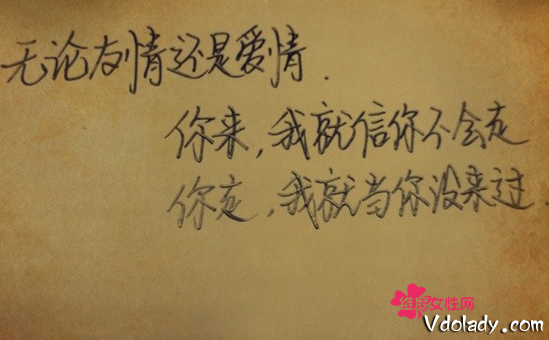 无论友情还是爱情.
你来,我就信你不会走
你走,我就当你没来过.
维多女性网
Vdolady.com